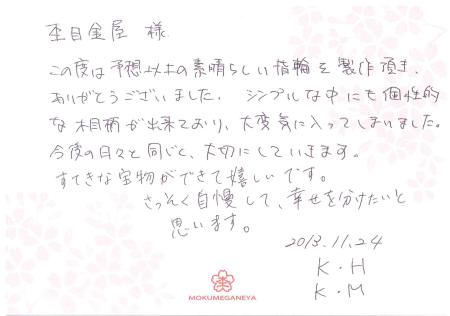 杢目金屋 様
この度は予想以上の素晴らしい指輪を製作頂き、
ありがとうございました。シンプルな中にも個性的
な木目柄が出来ており、大変気に入ってしまいました。
今後の日々と同じく、大切にしていきます。
すてきな宝物ができて嬉しいです。
さっそく自慢して、幸せを分けたいと
思います。
2013.11.24
K・H
K・M
MOKUMEGANEYA